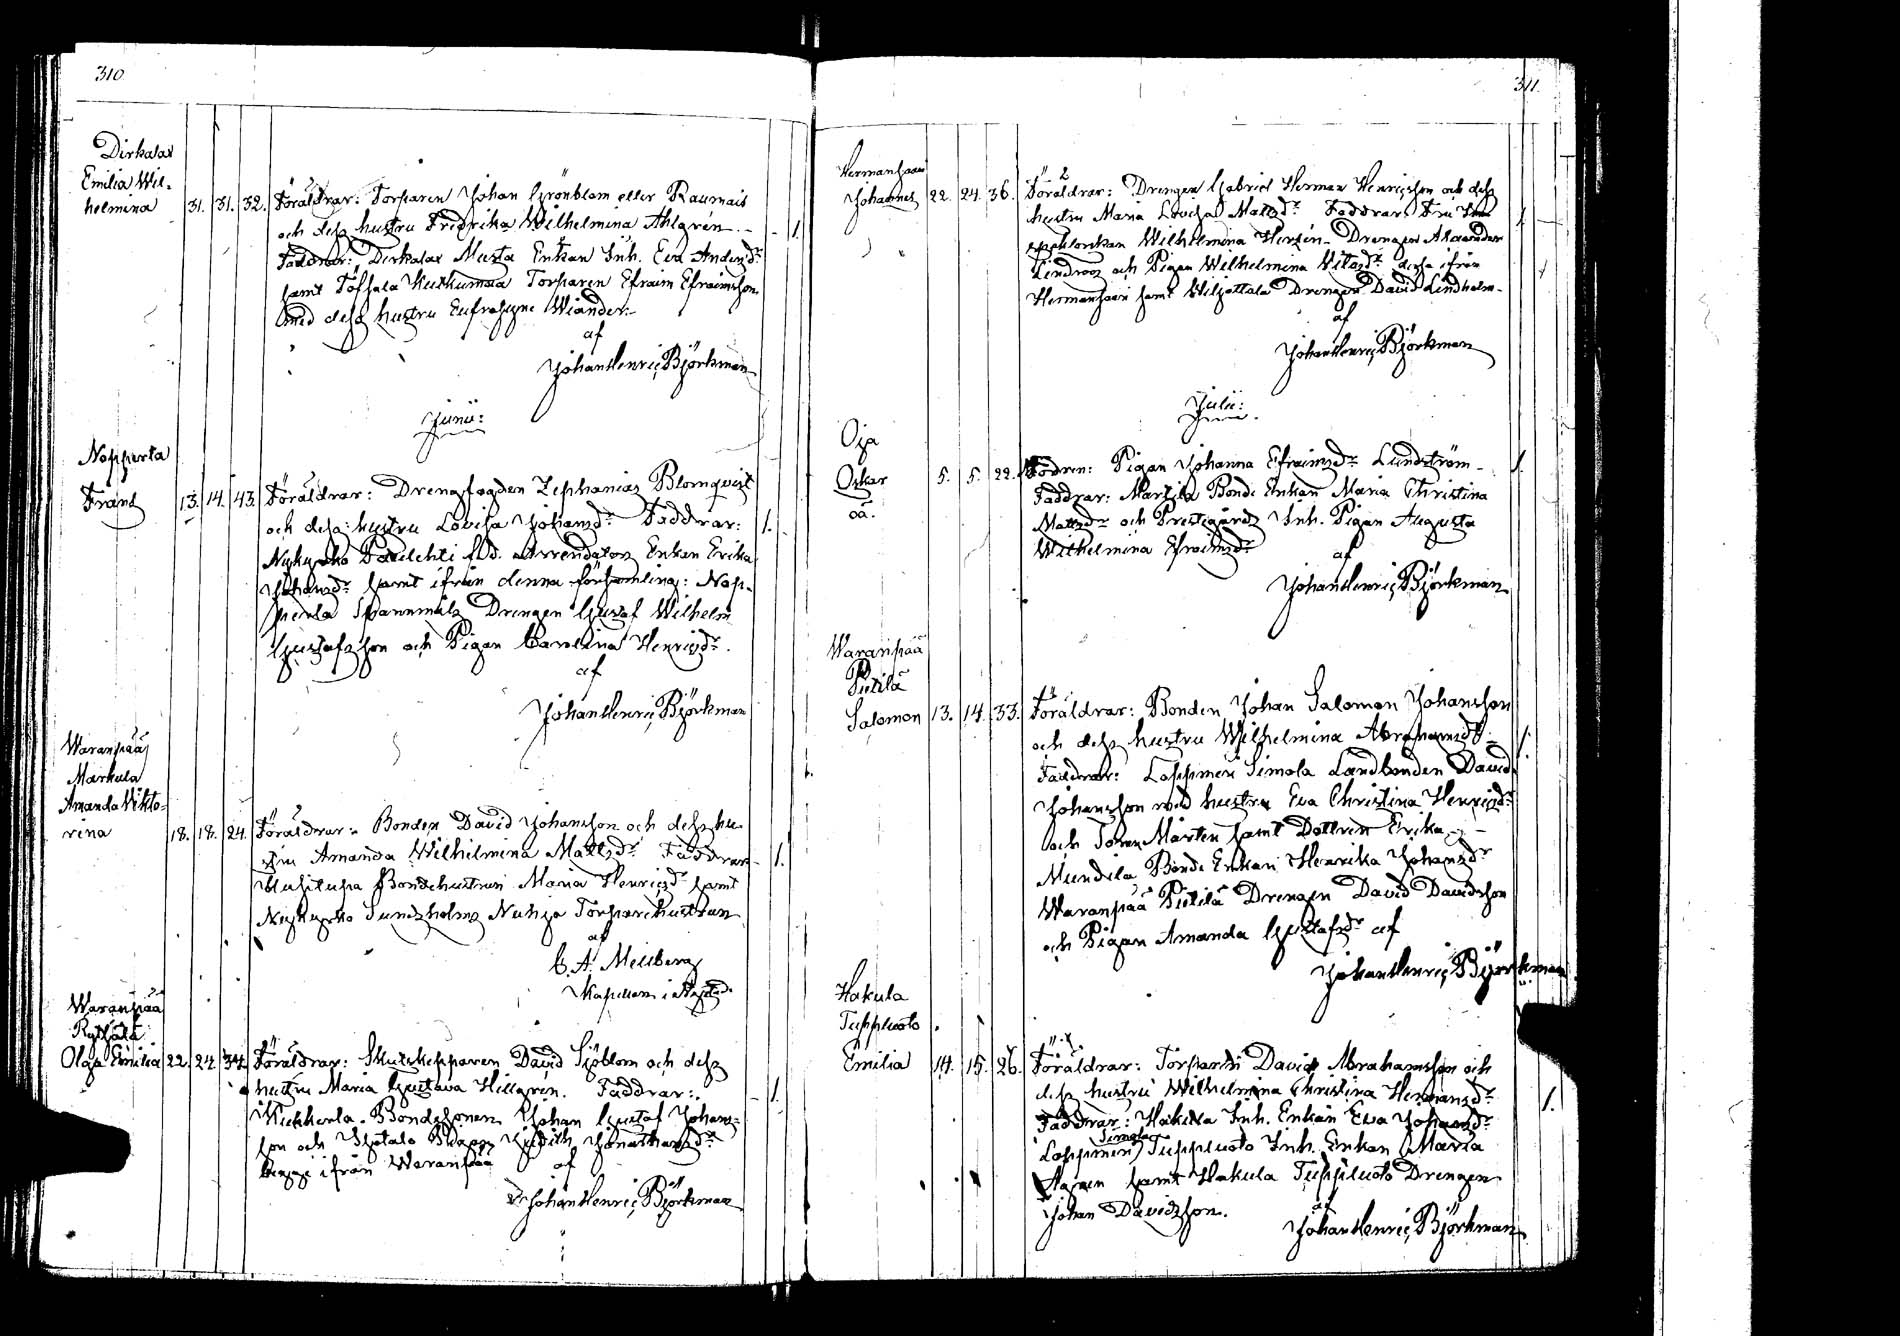 310
Dirkalax
Emilia Wil-
helmina 31. 31. 32. Föräldrar: Torparen Johan Grönblom eller Raumais
och dess hustru Fredrika Wilhelmina Ahlgrén.
Faddrar: Dirkalax Musta Enkan Inh. Eva Andersdr
samt Töfsala Torparen Efraim Efraimsson
med dess hustru Eufrosyne Wiander.
af
Johan Henric Björkman
Junii:
Nopperla
Frans 13. 14. 43. Föräldrar: Drengfogden Zephanias Blomqvist
och dess hustru Lovisa Johansdr Faddrar: 1.
Nykyrko f.d. Arrendators Enkan Erika
Johansdr samt ifrån denna församling: Nop-
perla Spannmåls Drengen Gustaf Wilhelm
Gustafsson och Pigan Carolina Henricsdr.
af
Johan Henric Björkman
Waranpää
Markula
Amanda Wikto-
rina 18. 18. 24. Föräldrar: Bonden David Johansson och dess hu-
stru Amanda Wilhelmina Mattsdr Faddrar 1.
Bondehustrun Maria Henricsdr samt
Nykyrko Sundholms Torparehustrun
af
C. A. Mellberg
Kapellan i
Waranpää
Rythölä
Olga Emilia 22. 24. 34. Föräldrar: Skutskepparen David Sjöblom och dess
hustru Maria Gustava Hellgren. Faddrar: 1.
Bondesonen Johan Gustaf Johans-
son och Judith Jonathansdr
begge ifrån Waranpää
af
Johan Henric Björkman
311.
Hermansaari
Johannes 22. 24. 36. Föräldrar: Drengen Gabriel Herman Henricsson och dess
hustru Maria Lovisa Mattsdr Faddrar: Fru In-
spektorskan Wilhelmina Herzén, Drengen Alexander
Lindroos och Pigan Wilhelmina dessa ifrån
Hermansaari samt Wiljattala Drengen David Lindholm
af
Johan Henric Björkman
Julii:
Oja
Oskar 5. 5. 22. Modren: Pigan Johanna Efraimsdr Lundström
oä. Faddrar: Marsila Bonde Enkan Maria Christina
Mattsdr och Prestegårds Inh. Pigan Augusta
Wilhelmina Efraimsdr
af
Johan Henric Björkman
Waranpää
Pietilä
Salomon 13. 14. 33. Föräldrar: Bonden Johan Salomon Johansson
och dess hustru Wilhelmina Abrahamsdr 1.
Faddrar: Lappmen Simola Landbonden David
Johansson med hustru Eva Christina Henricsdr
och Sonen Mårten samt Dottren Erika
Mundila Bonde Enkan Henrika Johansdr
Waranpää Pietilä Drengen David Davidsson
och Pigan Amanda Gustafsdr af
Johan Henric Björkman
Hakula
Tuppluoto
Emilia 14. 15. 26. Föräldrar: Torparen David Abrahamsson och
dess hustru Wilhelmina Christina Hermansdr 1.
Faddrar: Hakula Inh. Enkan Eva Johansdr
Lappmen Simola Tuppluoto Inh. Enkan Maria
samt Hakula Tuppluoto Drengen
Johan Davidsson.
af
Johan Henric Björkman